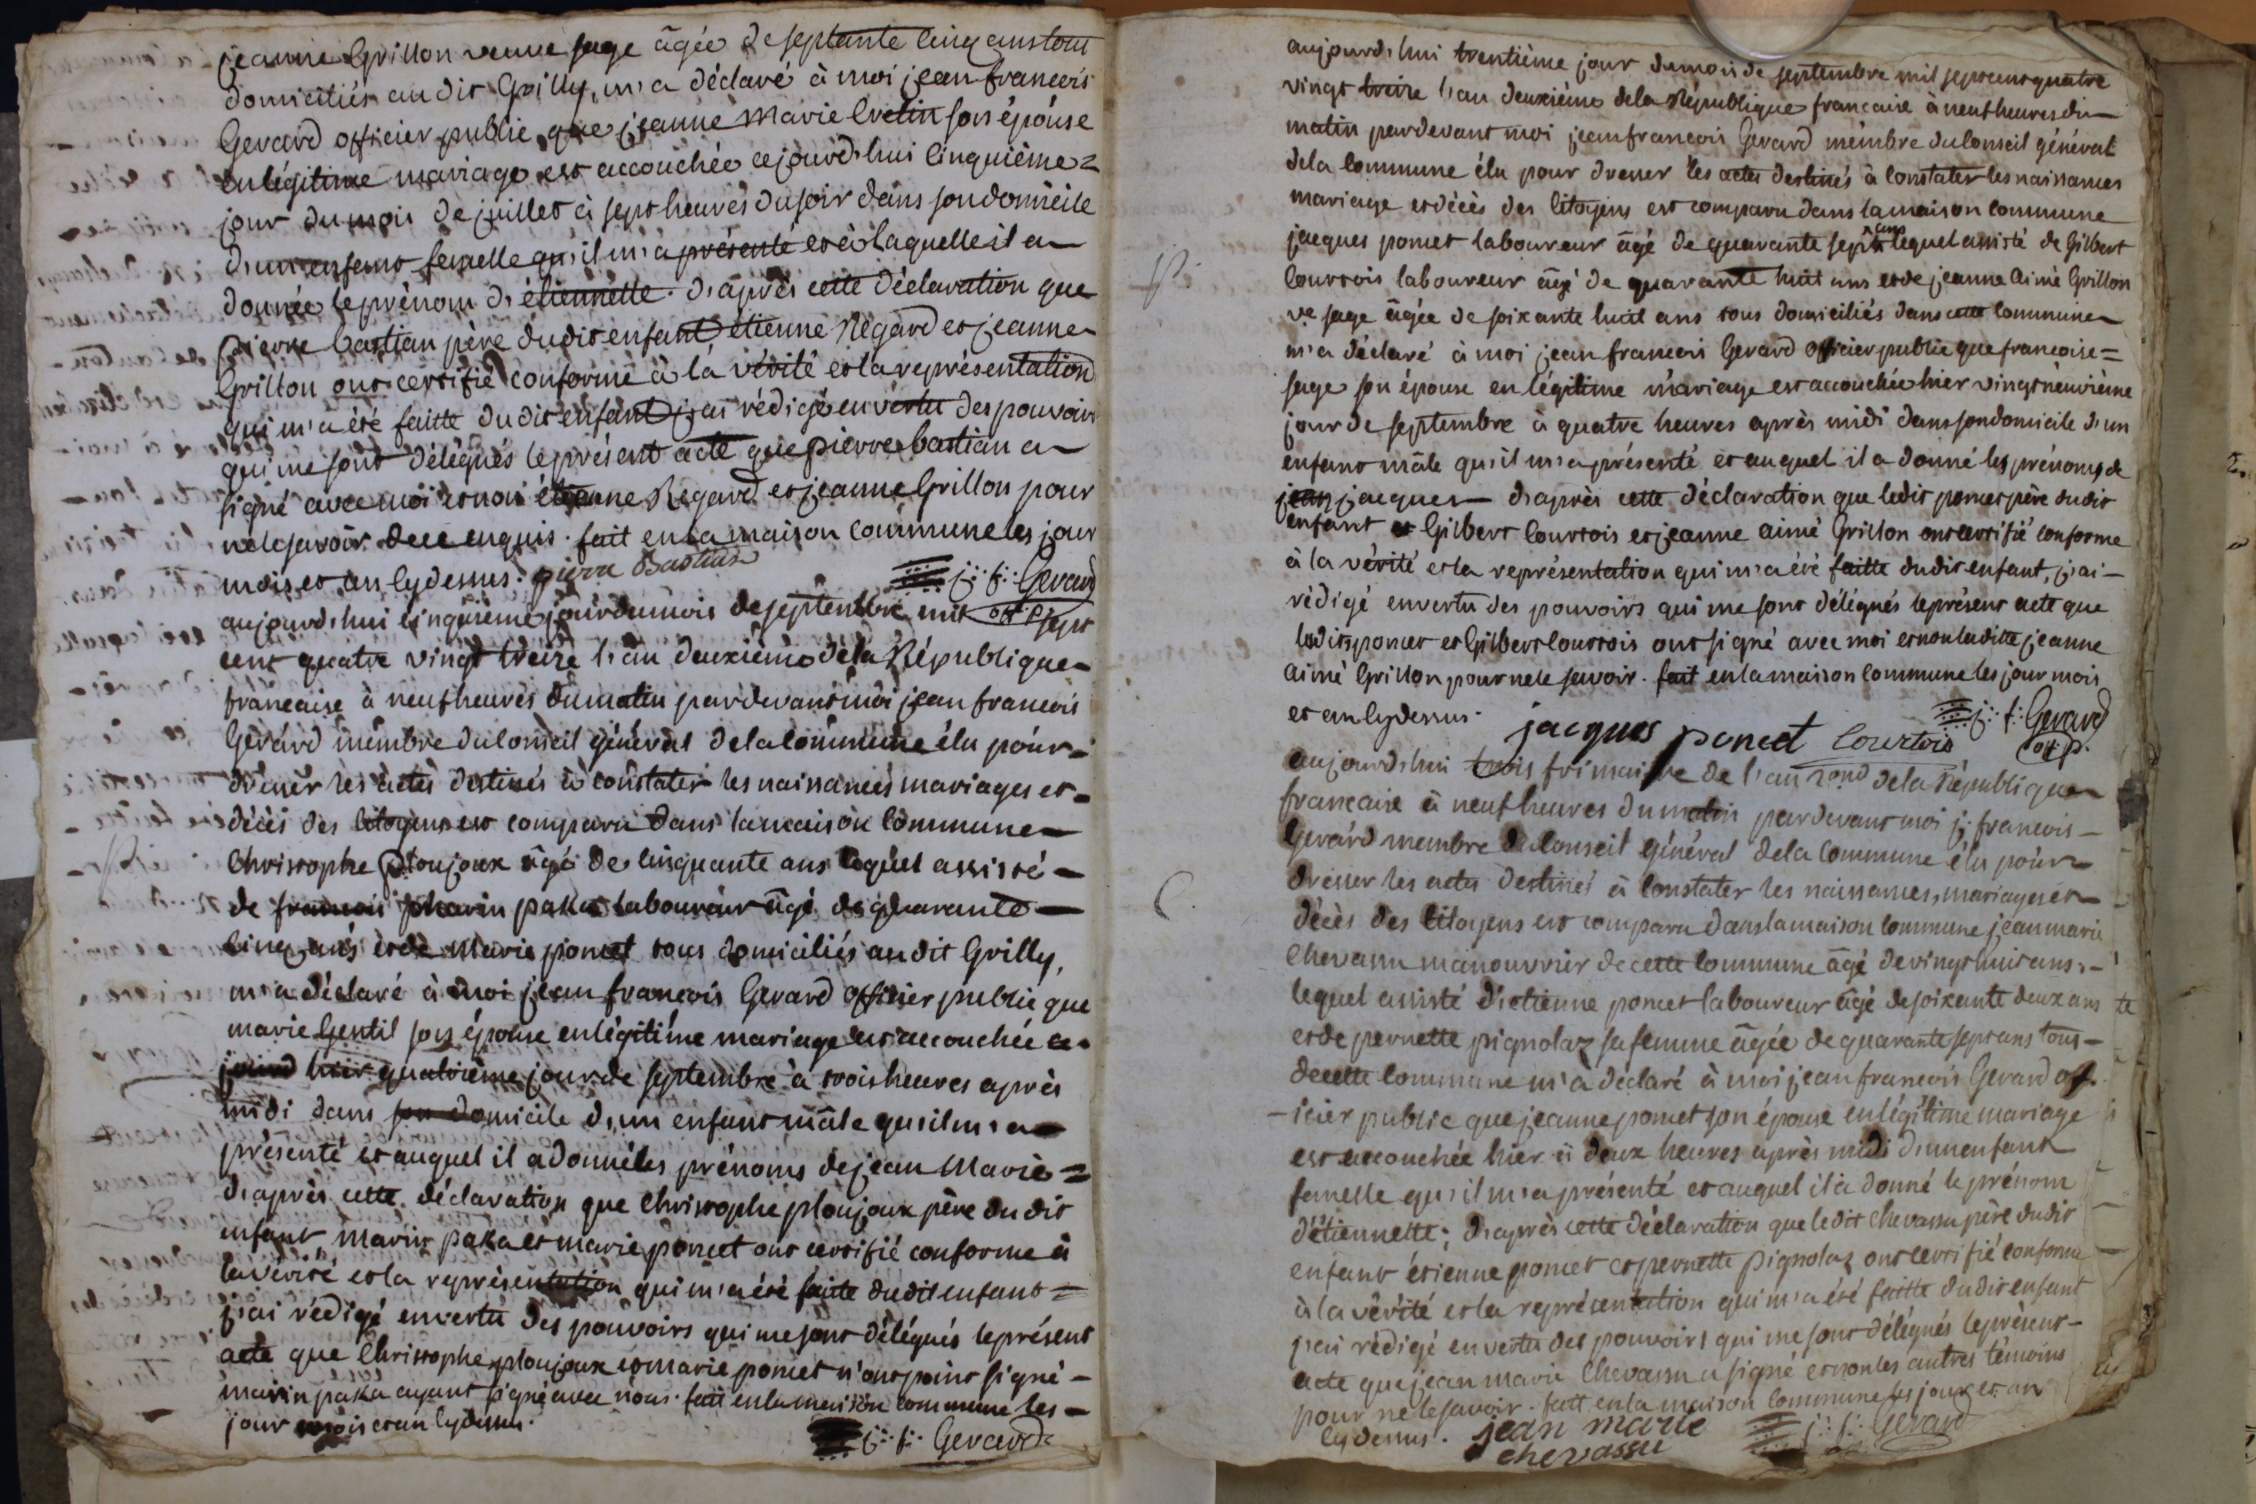 jeanne Grillon veuve sage âgée de septante cinq ans tous
domiciliés au dit Grilly, m'a déclaré à moi jean francois
Gerard officier public, que jeanne Marie Cretin son épouse
en légitime mariage est accouchée cejourd'hui cinquième =
jour du mois de juillet à sept heures du soir dans son domicile
d'un enfant femelle qu'il m'a présenté et à laquelle il a
donnée le prénom d'étiennette. d'après cette déclaration que
pierre bastian père dudit enfant étienne Regard et jeanne
Grillon ont certifié conforme à la vérité et la représentation
qui m'a été faitte du dit enfant j'ai rédigé en vertu des pouvoirs
qui me sont délégués le présent acte que pierre bastian a
signé avec moi et non étienne Regard et jeanne Grillon pour
ne le savoir de ce enquis. fait en la maison commune les jour
mois et an cy dessus. pierre Bastian j. f. Gerard
off. p.
aujourd'hui cinquième jour du mois de septembre mil sept
cent quatre vingt treize l'an deuxième de la République
francaise à neuf heures du matin pardevant moi jean francois
Gerard membre du conseil général de la commune élu pour
dresser les actes destinés à constater les naissances mariages et
décès des citoyens est comparu dans la maison commune
Christophe ploujoux âgé de cinquante ans lequel assisté
de marin paka laboureur âgé de quarante
cinq ans et de marie poncet tous domiciliés au dit Grilly,
m'a déclaré à moi jean francois Gerard officier public que
marie Gentil son épouse en légitime mariage est accouchée
hier quatrième jour de septembre à trois heures après
midi dans son domicile d'un enfant mâle qu'il m'a
présenté et auquel il a donné les prénoms de jean Marie =
d'après cette déclaration que Christophe ploujoux père du dit
enfant marin paka et marie poncet ont certifié conforme à
la vérité et la représentation qui m'a été faite dudit enfant =
j'ai rédigé en vertu des pouvoirs qui me sont délégués le présent
acte que Christophe ploujoux et marie poncet n'ont point signé
marin paka ayant signé avec nous. fait en la maison commune les
jour mois et an cy dessus.
j. f. Gerard
aujourd'hui trentième jour du mois de septembre mil sept cent quatre
vingt treize l'an deuxième de la République francaise à neuf heures du
matin pardevant moi jean francois Gerard membre du conseil général
de la commune élu pour dresser les actes destinés à constater les naissances
mariage et décès des citoyens est comparu dans la maison commune
jacques poncet laboureur âgé de quarante sept ans lequel assisté de Gilbert
Courtois laboureur âgé de quarante huit ans et de jeanne aimé Grillon
ve sage âgée de soixante huit ans tous domiciliés dans cette commune
m'a déclaré à moi jean francois Gerard officier public que francoise =
sage son épouse en légitime mariage est accouchée hier vingt neuvième
jour de septembre à quatre heures après midi dans son domicile d'un
enfant mâle qu'il m'a présenté et auquel il a donné les prénoms de
jean jacques d'après cette déclaration que ledit poncet père du dit
enfant et Gilbert Courtois et jeanne aimé Grillon ont certifié conforme
à la vérité et la représentation qui m'a été faitte du dit enfant, j'ai
rédigé en vertu des pouvoirs qui me sont délégués le présent acte que
ledit poncet et Gilbert Courtois ont signé avec moi et non laditte jeanne
aimé Grillon pour ne le savoir. fait en la maison commune les jour mois
et an cy dessus.
jacques poncet Courtois j. f. Gerard
off. p.
P.
aujourd'hui trois frimaire de l'an 2ond de la République
francaise à neuf heures du matin pardevant moi j. francois
Gerard membre du conseil général de la commune élu pour
dresser les actes destinés à constater les naissances, mariages et
décès des citoyens est comparu dans la maison commune jean marie
Chevassu manouvrier de cette commune âgé de vingt huit ans,
lequel assisté d'etienne poncet laboureur âgé de soixante deux ans
et de pernette pignolaz sa femme âgée de quarante sept ans tous
de cette commune m'a déclaré à moi jean francois Gerard off
icier public que jeanne poncet son épouse en légitime mariage
est accouchée hier à deux heures après midi d'un enfant
femelle qu'il m'a présenté et auquel il a donné le prénom
d'étiennette; d'après cette déclaration que le dit Chevassu père du dit
enfant étienne poncet et pernette pignolaz ont certifié conforme
à la vérité et la représentation qui m'a été faitte du dit enfant
j'ai rédigé en vertu des pouvoirs qui me sont délégués le présent
acte que jean marie Chevassu a signé et non les autres témoins
pour ne le savoir. fait en la maison commune les jour et an
cy dessus. jean marie j. f. Gerard
chevassu
C.